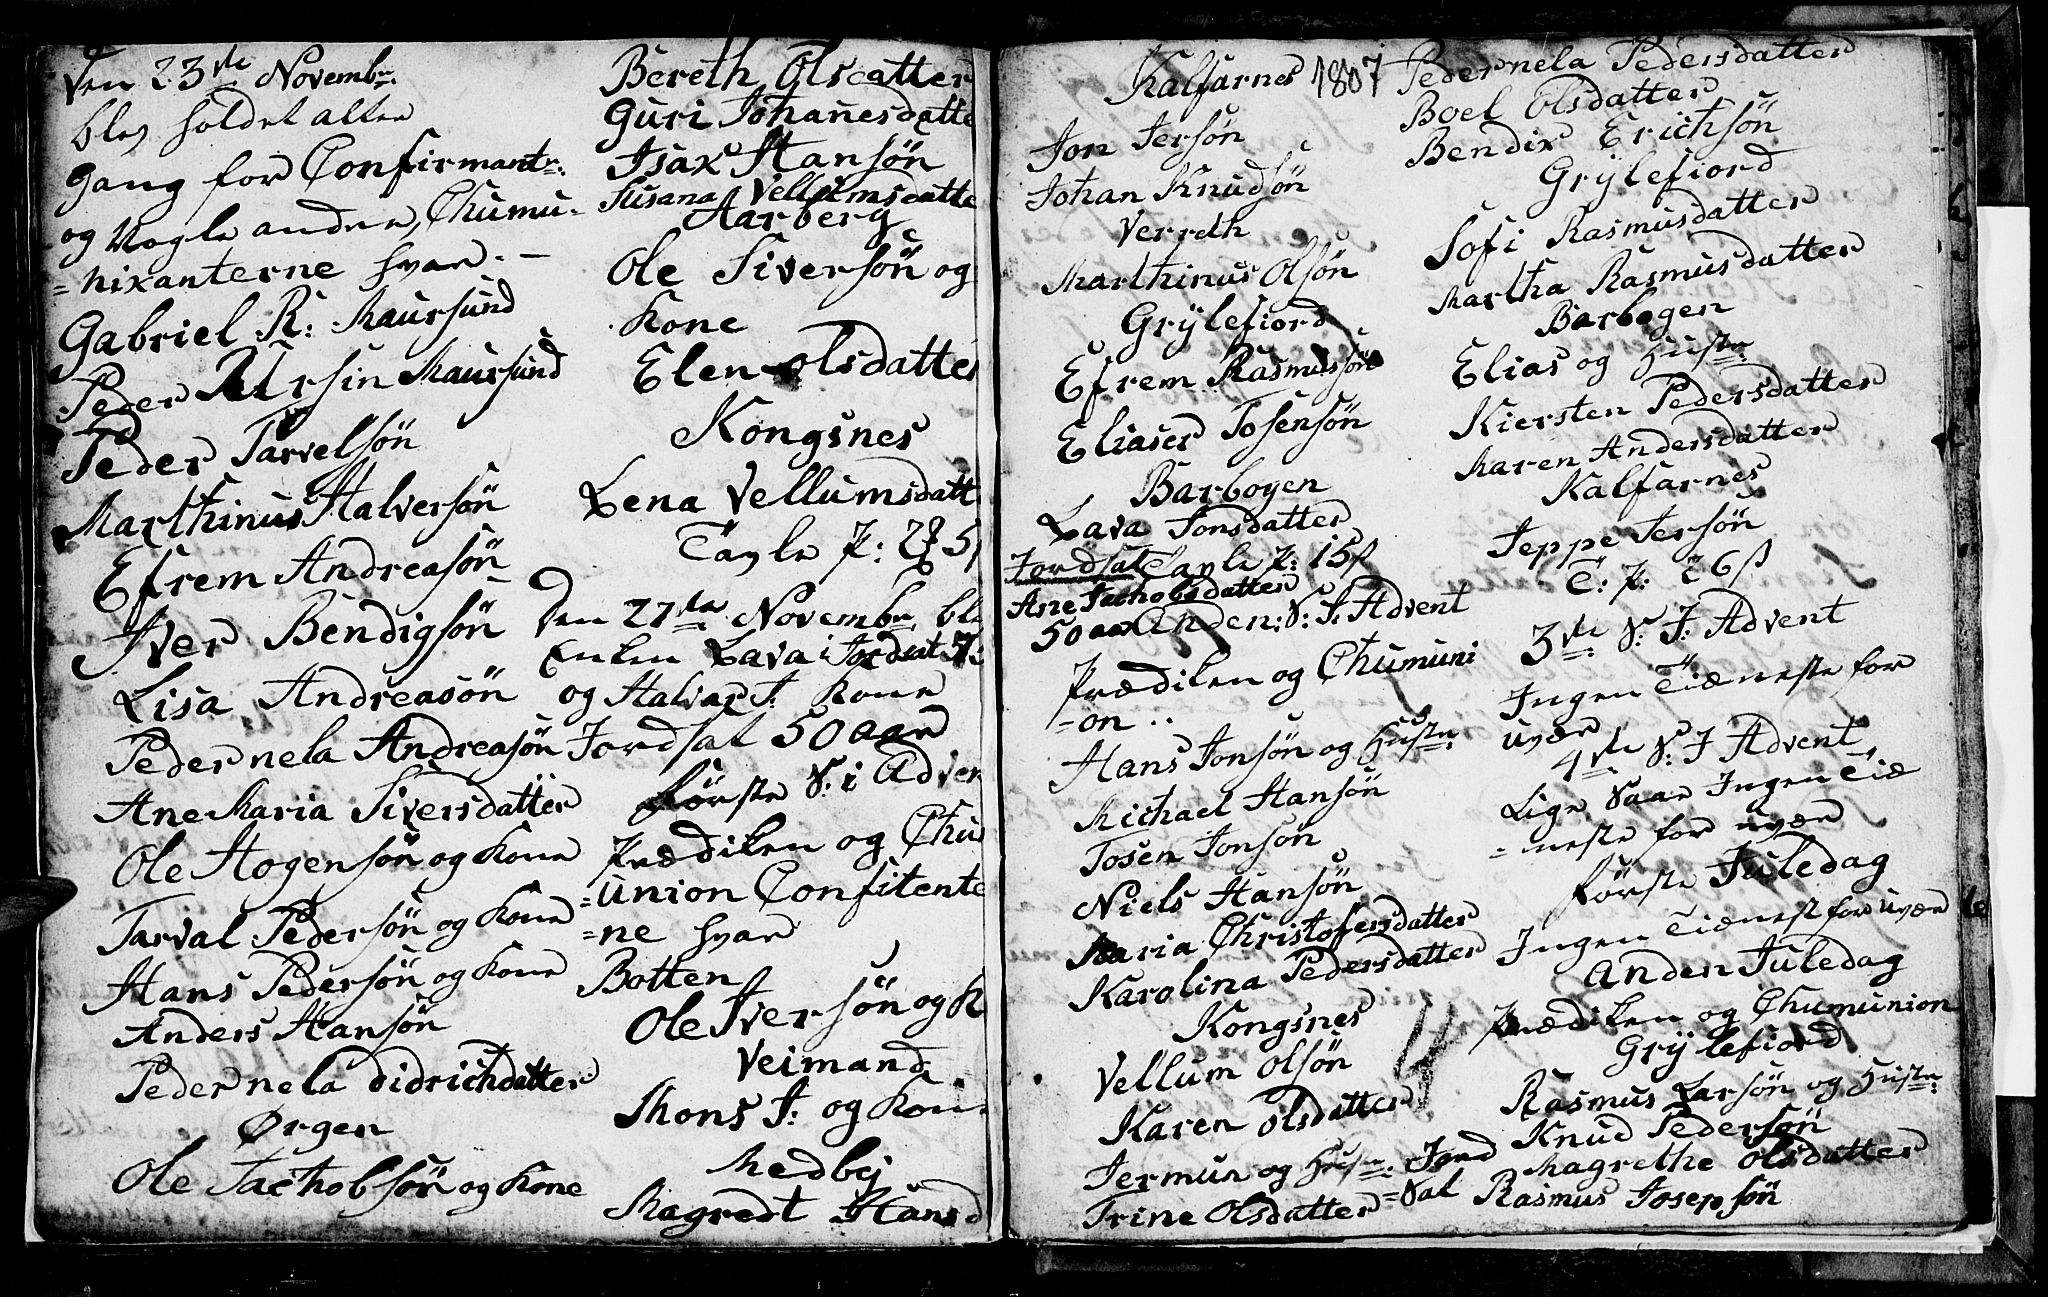 Den 23de Novembr.
blev holdet alter
gang for Confirmantr:
og Nogle andre, Chumu-
=nixanterne hvar. —
Gabriel R: Maursund
Peder Ursin Maursund
Peder Tarvelsøn
Marthinus Halversøn
Efrem Andreasøn
Iver Bendigsøn
Lisa Andreasøn
Pedernela Andreasøn
Ane Maria Siversdatter
Ole Hogensøn og Kone
Tarval Pedersøn og Kone
Hans Pedersøn og Kone
Anders Hansøn
Pedernela Didrichdatter
Ørgen
Ole Jachobsøn og Kone
Bereth Olsdatter
Guri Johanesdatte
Isax Hansøn
Susana Vellumsdatte
Aarberg
Ole Siversøn og
Kone
Elen Olsdatter
Kongsnes
Lena Vellumsdatt
Tavle P:
Den 27de Novembr. ble
Enken Lava i Jordsat
og Halvar J. Kone
Jordsat 50 aar
første S: i Adven
Prædiken og Chu
=union Confitente
=ne hvar
Botten
Ole Iversøn og K
Veimand
Mons J: og Kon
Medbej
Magredt Hansd
Kalfarnes 1807
Jon Jersøn
Johan Knudsøn
Verreth
Marthinus Olsøn
Grÿlefiord
Efrem Rasmussøn
Eliaser Tosensøn
Barbogen
Lava Jonsdatter
Jordsat Tavle P: 15 ß
Ane Jachobsdatter
50 aar Anden: S: J: Advent
Prædiken og Chumuni
=on ..
Hans Jonsøn og Hustr:
Michael Hansøn
Tosen Jonsøn
Niels Hansøn
Maria Christofersdatter
Karolina Pedersdatter
Kongsnes
Vellum Olsøn
Karen Olsdatter
Jermun og Hustr:
Trine Olsdatter
Pedernela Pedersdatter
Boel Olsdatter
Bendix Erichsøn
Grÿlefiord
Sofi Rasmusdatter
Martha Rasmusdatter
Barbogen
Elias og Hustr
Kiersten Pedersdatter
Maren Andersdatter
Kalfarnes
Jeppe Jersøn
T: P: 26 ß
3de S: J: Advent
Ingen Tieneste for
uvær
4de S: J Advent
Lige Saa Ingen Tie
=neste for uvær
første Juledag
Ingen Tienest for uvær
Anden Juledag
Prædiken og Chumunion
Grÿlefiord
Rasmus Larsøn og Hustr:
Jord Knud Pedersøn
=Sat Magrethe Olsdatter
Rasmus Josepsøn